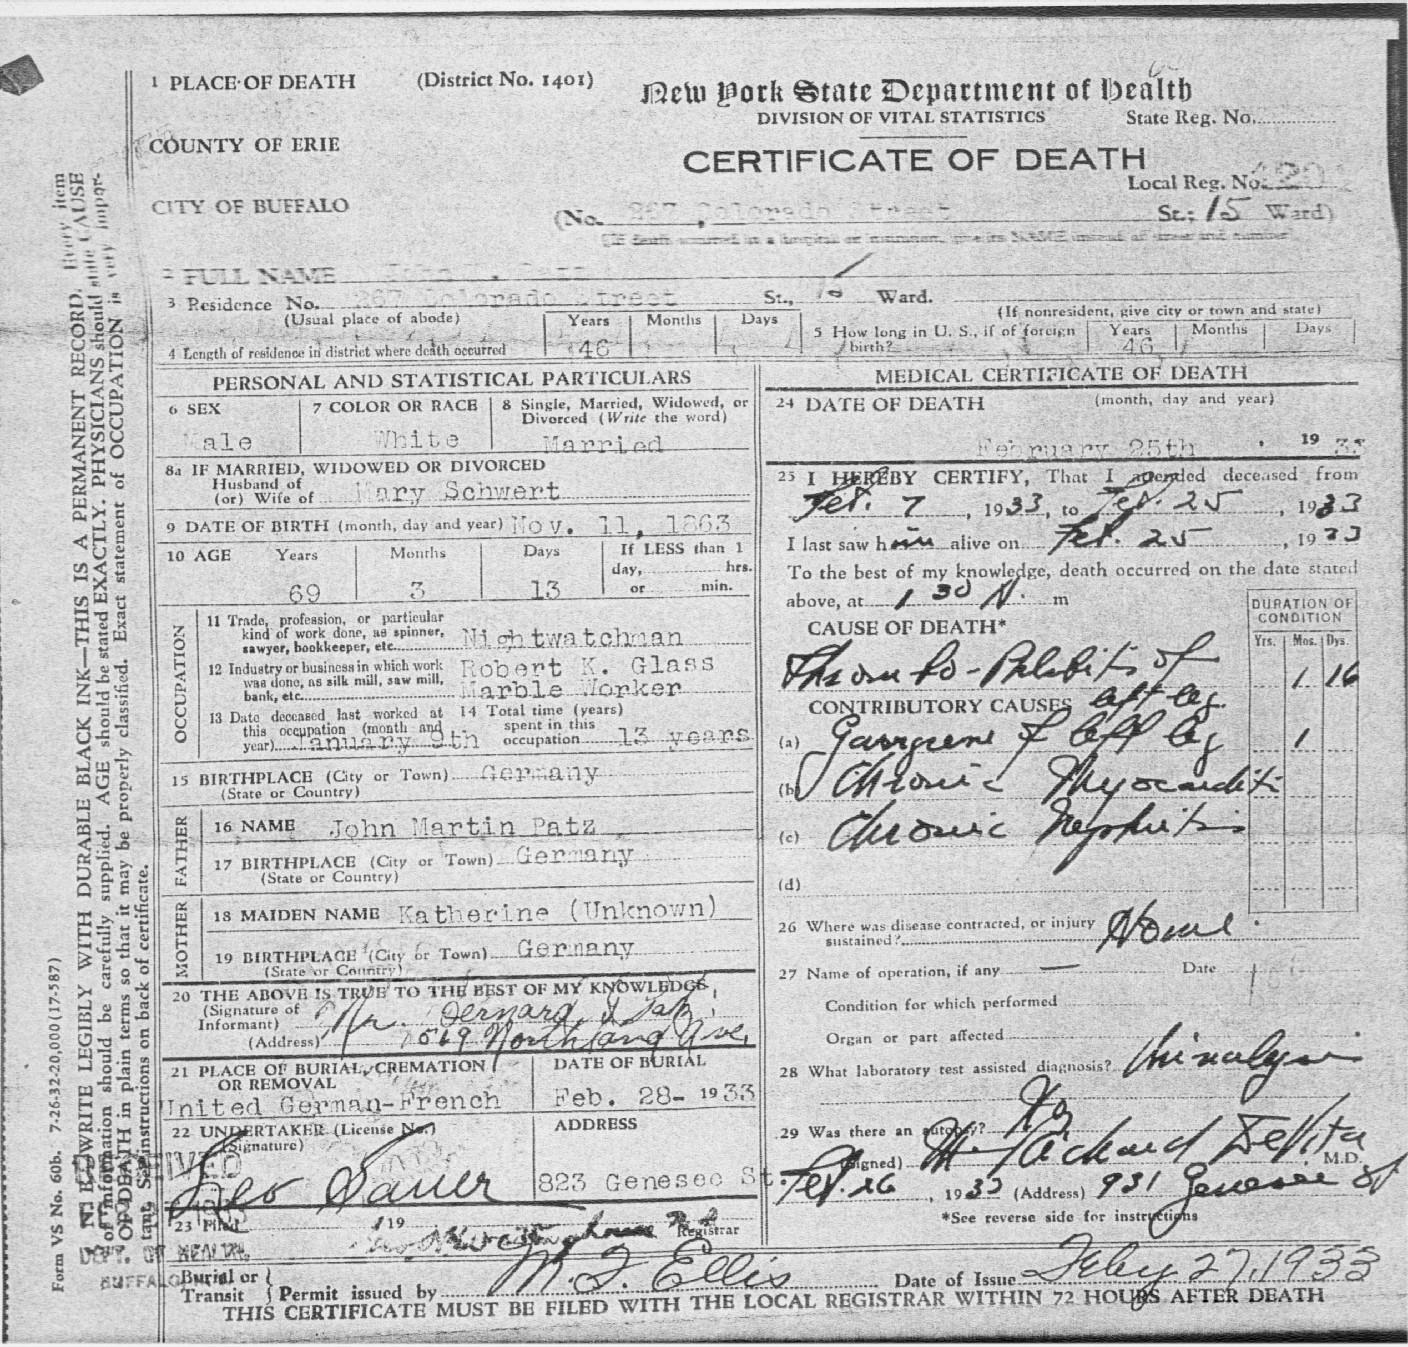 1 PLACE OF DEATH (District No. 1401)
New York State Department of Health
DIVISION OF VITAL STATISTICS State Reg. No.
COUNTY OF ERIE
CERTIFICATE OF DEATH
Local Reg. No.
CITY OF BUFFALO
(No. 267 Colorado Street St.; 15 Ward)
(If death occurred in a hospital or institution, give its NAME instead of street and number)
2 FULL NAME John
3 Residence No. 267 Colorado Street St., 15 Ward.
(Usual place of abode) (If nonresident, give city or town and state)
4 Length of residence in district where death occurred Years 46 Months Days
5 How long in U. S., if of foreign birth? Years 46 Months Days
PERSONAL AND STATISTICAL PARTICULARS
6 SEX Male
7 COLOR OR RACE White
8 Single, Married, Widowed, or
Divorced (Write the word)
Married
8a IF MARRIED, WIDOWED OR DIVORCED
Husband of
(or) Wife of Mary Schwert
9 DATE OF BIRTH (month, day and year) Nov. 11, 1863
10 AGE Years Months Days If LESS than 1
day, hrs.
69 3 13 or min.
OCCUPATION
11 Trade, profession, or particular
kind of work done, as spinner,
sawyer, bookkeeper, etc. Nightwatchman
12 Industry or business in which work Robert K. Glass
was done, as silk mill, saw mill,
bank, etc. Marble Worker
13 Date deceased last worked at
this occupation (month and
year) January 9th
14 Total time (years)
spent in this
occupation 13 years
15 BIRTHPLACE (City or Town) Germany
(State or Country)
FATHER
16 NAME John Martin Patz
17 BIRTHPLACE (City or Town) Germany
(State or Country)
MOTHER
18 MAIDEN NAME Katherine (Unknown)
19 BIRTHPLACE (City or Town) Germany
(State or Country)
20 THE ABOVE IS TRUE TO THE BEST OF MY KNOWLEDGE
(Signature of
Informant) Mr. Bernard J. Patz
(Address) 569 Northland Ave.
21 PLACE OF BURIAL, CREMATION
OR REMOVAL
United German-French
DATE OF BURIAL
Feb. 28- 1933
22 UNDERTAKER (License No.)
(Signature)
Leo Sauer
ADDRESS
823 Genesee St.
23 Filed 19
Registrar
MEDICAL CERTIFICATE OF DEATH
24 DATE OF DEATH (month, day and year)
February 25th , 19 33
25 I HEREBY CERTIFY, That I attended deceased from
Feb. 7 , 1933, to Feb. 25 , 1933
I last saw him alive on Feb. 25 , 1933
To the best of my knowledge, death occurred on the date stated
above, at 1 30 A. m
CAUSE OF DEATH*
DURATION OF
CONDITION
Yrs. Mos. Dys.
Thrombo-Phlebitis of 1 16
left leg.
CONTRIBUTORY CAUSES
(a) Gangrene of left leg 1
(b) Chronic Myocarditis
(c) Chronic Nephritis
(d)
26 Where was disease contracted, or injury
sustained? Home
27 Name of operation, if any — Date
Condition for which performed
Organ or part affected
28 What laboratory test assisted diagnosis? Urinalysis
29 Was there an autopsy? No
(Signed) M. Richard DeVita M.D.
Feb. 26 , 1933 (Address) 931 Genesee St
*See reverse side for instructions
Burial or
Transit Permit issued by M. J. Ellis Date of Issue Feby 27, 1933
THIS CERTIFICATE MUST BE FILED WITH THE LOCAL REGISTRAR WITHIN 72 HOURS AFTER DEATH
Form VS No. 60b. 7-26-32-20,000 (17-587)
N. B.—WRITE LEGIBLY WITH DURABLE BLACK INK—THIS IS A PERMANENT RECORD. Every item
of information should be carefully supplied. AGE should be stated EXACTLY. PHYSICIANS should state CAUSE
OF DEATH in plain terms so that it may be properly classified. Exact statement of OCCUPATION is very impor-
tant. See instructions on back of certificate.
RECEIVED
DEPT. OF HEALTH
BUFFALO, N.Y.